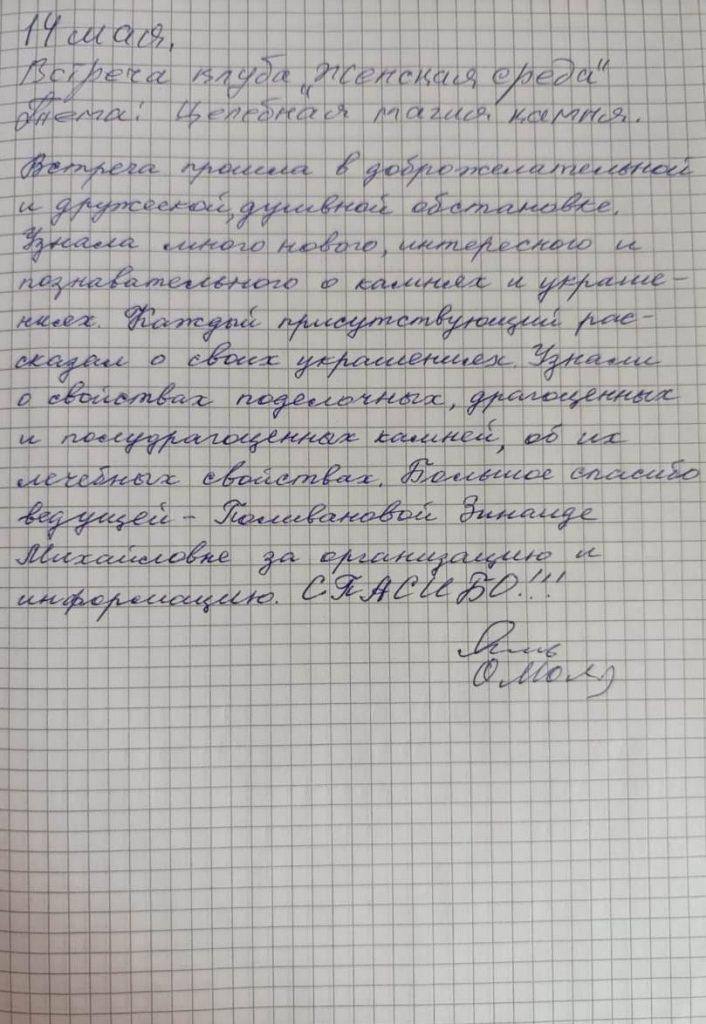 14 мая.
Встреча клуба „Женская среда"
Тема: Целебная магия камня.
Встреча прошла в доброжелательной
и дружеской, душевной обстановке.
Узнала много нового, интересного и
познавательного о камнях и украше-
ниях. Каждый присутствующий рас-
сказал о своих украшениях. Узнали
о свойствах поделочных, драгоценных
и полудрагоценных камней, об их
лечебных свойствах. Большое спасибо
ведущей – Поливановой Зинаиде
Михайловне за организацию и
информацию. СПАСИБО!!!